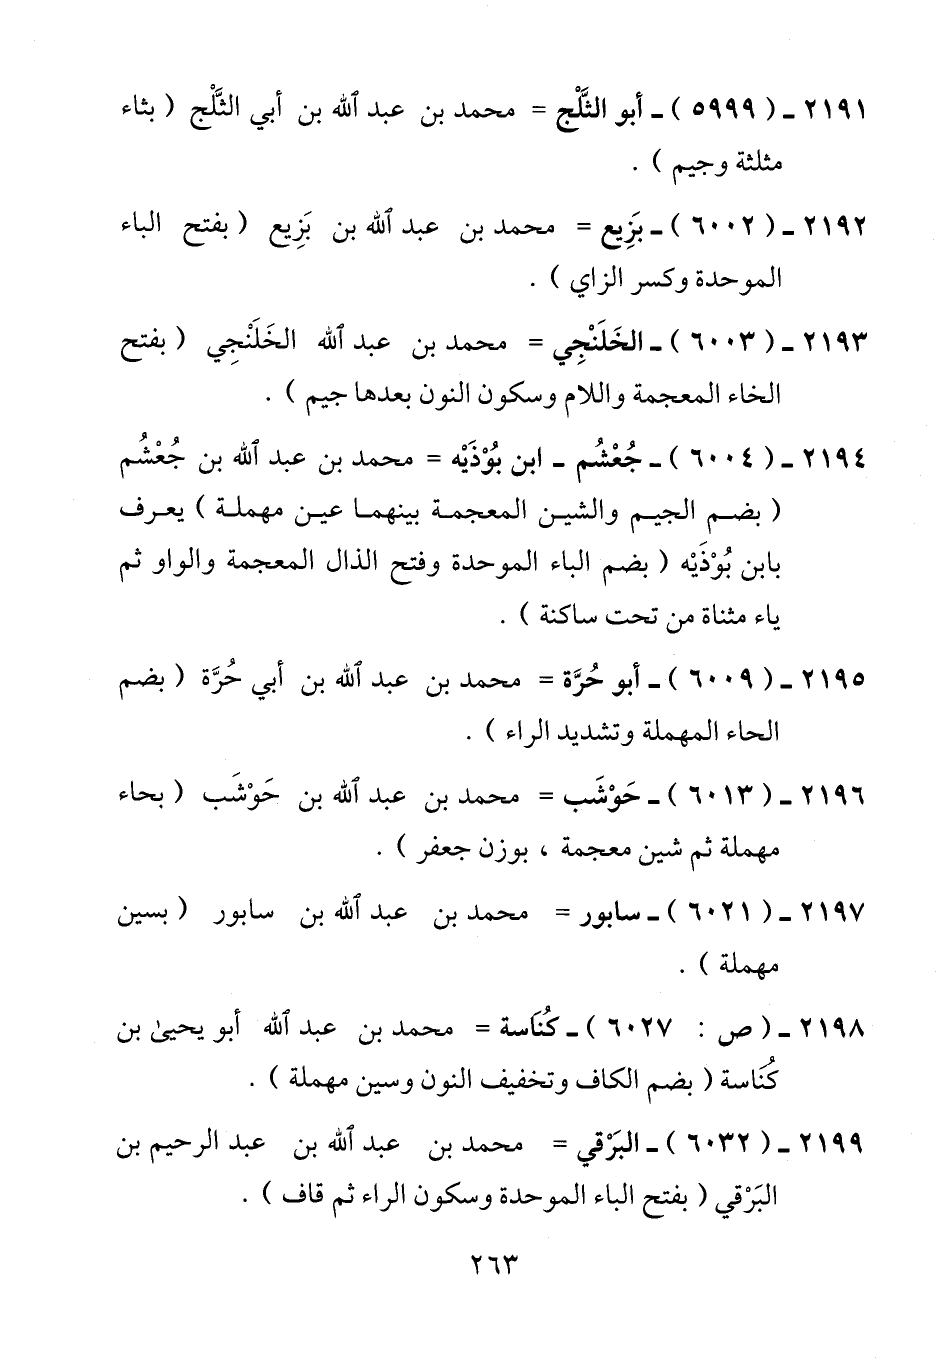 ٢١٩١ ـ ( ٥٩٩٩ ) ـ أبو الثَّلْج = محمد بن عبد الله بن أبي الثَّلْج ( بثاء
مثلثة وجيم ) .
٢١٩٢ ـ ( ٦٠٠٢ ) ـ بَزِيع = محمد بن عبد الله بن بَزِيع ( بفتح الباء
الموحدة وكسر الزاي ) .
٢١٩٣ ـ ( ٦٠٠٣ ) ـ الخَلَنْجِي = محمد بن عبد الله الخَلَنْجِي ( بفتح
الخاء المعجمة واللام وسكون النون بعدها جيم ) .
٢١٩٤ ـ ( ٦٠٠٤ ) ـ جُعْشُم ـ ابن بُوْذَيْه = محمد بن عبد الله بن جُعْشُم
( بضم الجيم والشين المعجمة بينهما عين مهملة ) يعرف
بابن بُوْذَيْه ( بضم الباء الموحدة وفتح الذال المعجمة والواو ثم
ياء مثناة من تحت ساكنة ) .
٢١٩٥ ـ ( ٦٠٠٩ ) ـ أبو حُرَّة = محمد بن عبد الله بن أبي حُرَّة ( بضم
الحاء المهملة وتشديد الراء ) .
٢١٩٦ ـ ( ٦٠١٣ ) ـ حَوْشَب = محمد بن عبد الله بن حَوْشَب ( بحاء
مهملة ثم شين معجمة ، بوزن جعفر ) .
٢١٩٧ ـ ( ٦٠٢١ ) ـ سابور = محمد بن عبد الله بن سابور ( بسين
مهملة ) .
٢١٩٨ ـ ( ص : ٦٠٢٧ ) ـ كُنَاسة = محمد بن عبد الله أبو يحيىٰ بن
كُنَاسة ( بضم الكاف وتخفيف النون وسين مهملة ) .
٢١٩٩ ـ ( ٦٠٣٢ ) ـ البَرْقي = محمد بن عبد الله بن عبد الرحيم بن
البَرْقي ( بفتح الباء الموحدة وسكون الراء ثم قاف ) .
٢٦٣